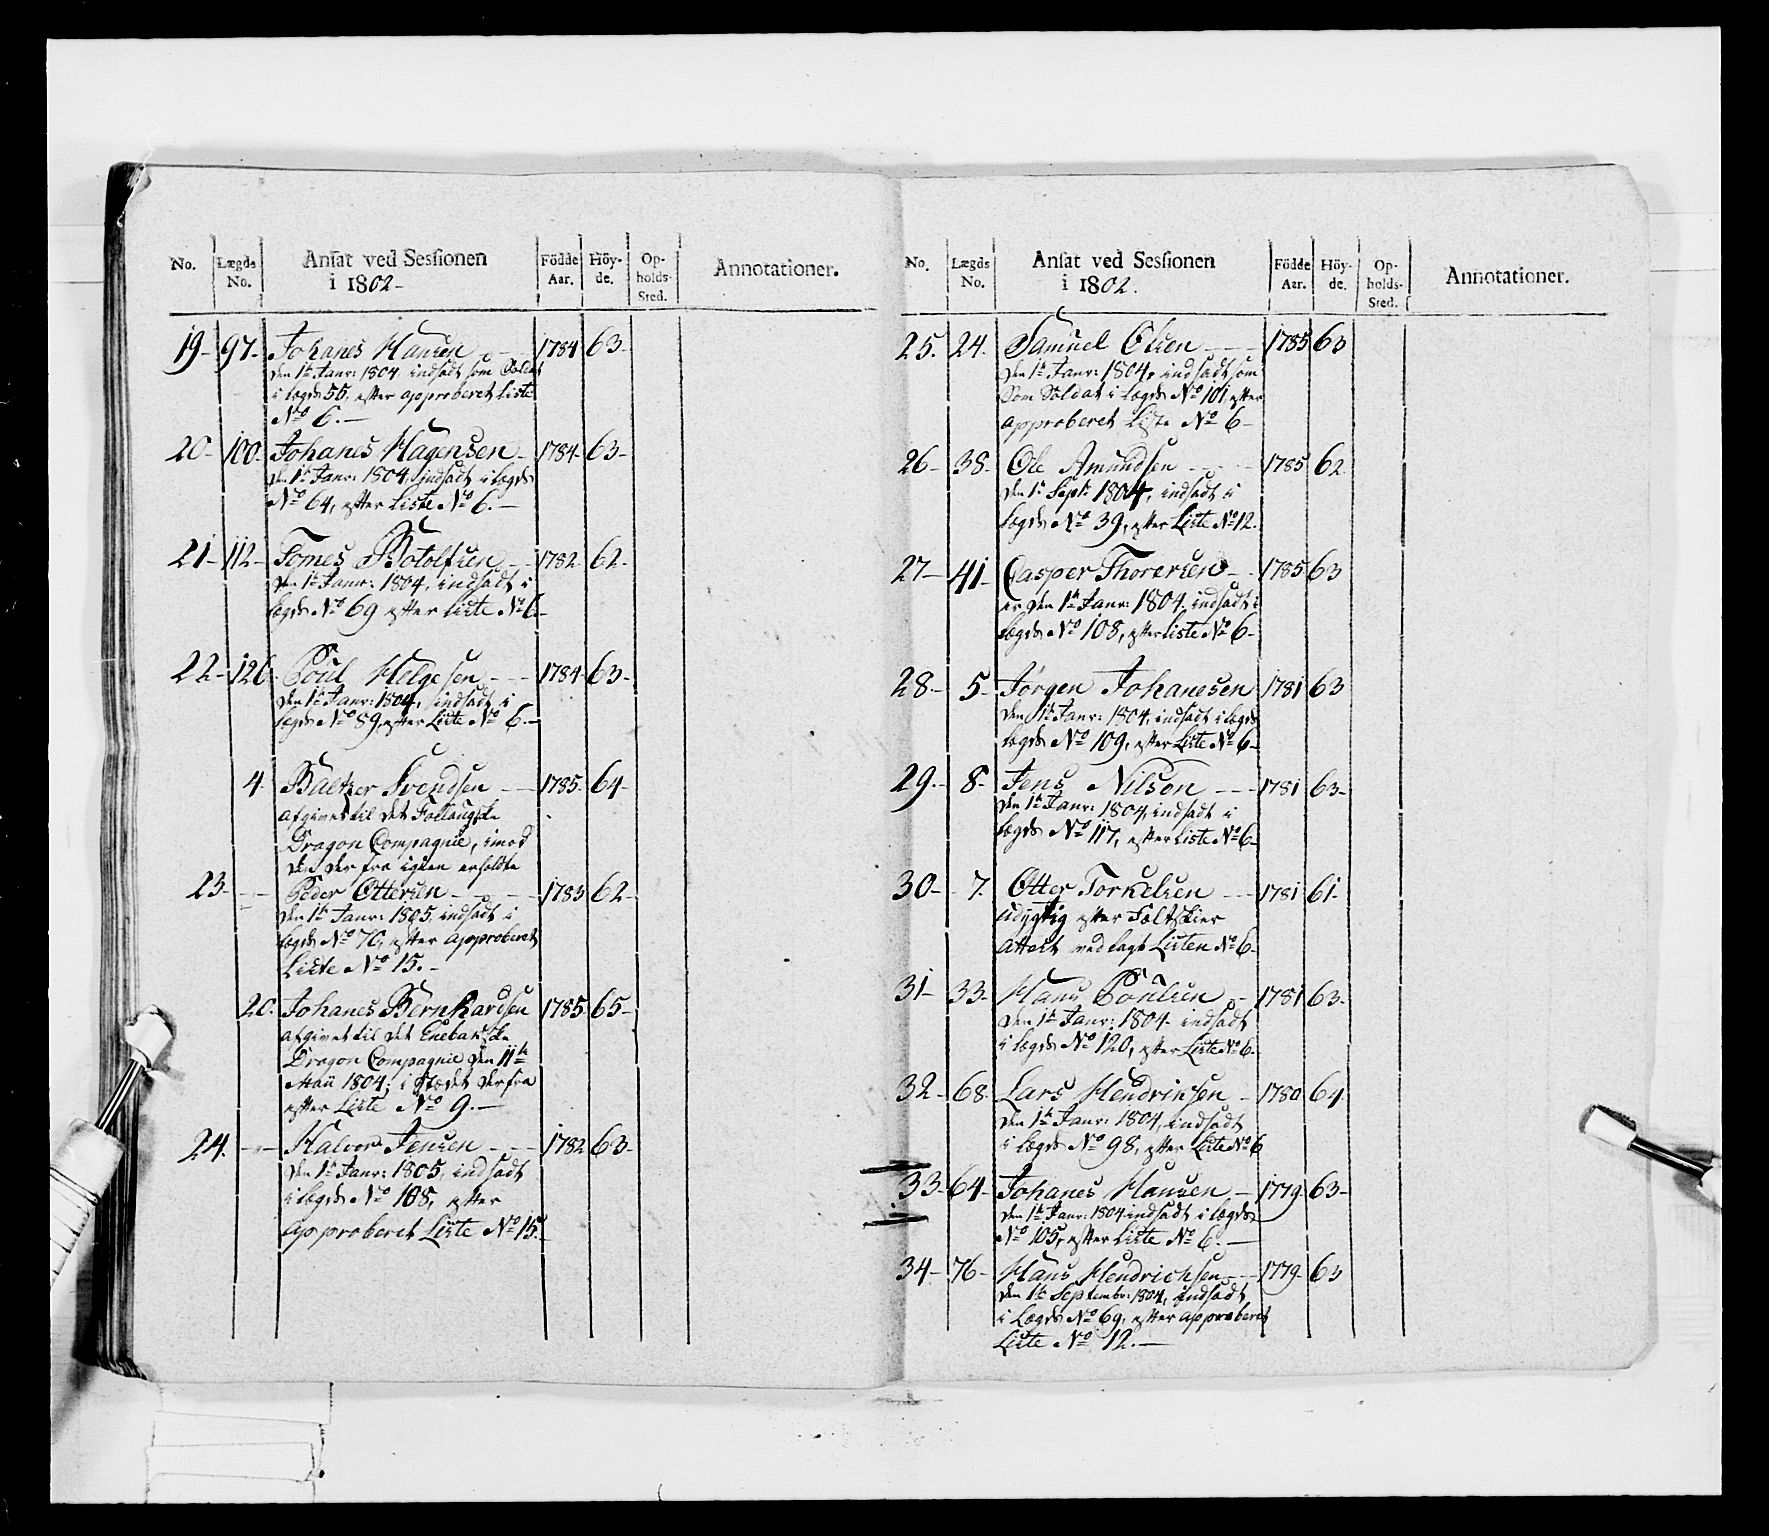 No. Lægds No. Ansat ved Sessionen i 1802 - Födde Aar. Höy-de. Op-holds-Sted. Annotationer.
19 - 97 - Johanes Hansen 1784 63 -
den 1te Janr: 1804 indsadt som Soldat
i lægd 55, efter approberet Liste
No 6. -
20 - 100 - Johanes Hagensen - 1784 - 63 -
den 1te Janr: 1804, indsadt i Lægds
No 64, efter Liste No 6. -
21 - 112 - Tomes Botolfsen - - 1782 62 -
den 1te Janr: 1804, indsadt i
Lægds No 69 efter Liste No 6 -
22 - 126 - Poul Helgesen - - - 1784 - 63 -
den 1te Janr: 1804, indsadt i
lægds No 89, efter Liste No 6. -
4 - Baltzer Svendsen - - 1785 - 64 -
afgivet til det Follougske
Dragon Compagnie, imod
den derfra igien erholdte
23 - - - Peder Ottersen - - - - 1783 62 -
den 1te Janr: 1805, indsadt i
Lægds No 70, efter approberet
Liste No 15. -
20. Johanes Bernhardsen 1785 65 -
afgivet til det Enebakske
Dragon Compagnie den 11te
Maii 1804; i stædet derfra
efter Liste No 9. -
24. - - Halvor Jensen - - - 1782 63 -
den 1te Janr: 1805, indsadt
i Lægds No 108, efter
approberet Liste No 15. -
No. Lægds No. Ansat ved Sessionen i 1802. Födde Aar. Höy-de. Op-holds-Sted. Annotationer.
25. 24. Samuel Olsen - - - 1785 63
den 1te Janr: 1804, indsadt som
Som Soldat i Lægds No 101 efter
approberet Liste No 6 -
26 - 38 - Ole Amundsen - - - - 1785 62
den 1te Sept: 1804, indsadt i
Lægds No 39, efter Liste No 12.
27 - 41 - Casper Thorersen - - 1785 63
er den 1te Janr: 1804. indsadt i
Lægds No 108, efter Liste No 6 -
28 - 5 - Jørgen Johanesen 1781 63
den 1te Janr: 1804, indsadt i lægds
Lægds No 109, efter Liste No 6 -
29. - 8 - Jens Nilsen - - - 1781 63 -
den 1te Janr: 1804, indsadt i
Lægds No 117, efter Liste No 6 -
30 - - 7. Otter Torkelsen - - - 1781 61 -
udygtig efter Feltskier
Attest vedlagt Listen No 6 -
31 - 33 - Hans Poulsen - 1781 63 -
den 1te Janr: 1804 - indsadt
i Lægds No 120, efter Liste No 6 -
32 - 68 - Lars Hendrichsen - 1780 64
den 1te Janr: 1804, indsadt
i Lægds No 98, efter Liste No 6
33 - 64 - Johanes Hansen - 1779 - 63 -
den 1te Janr: 1804 indsadt i Lægds
No 105, efter Liste No 6. -
34 - 76 - Hans Hendrichsen - - 1779 - 63
den 1te Septembr: 1804, indsadt
i Lægds No 69, efter approberet
Liste No 12. -